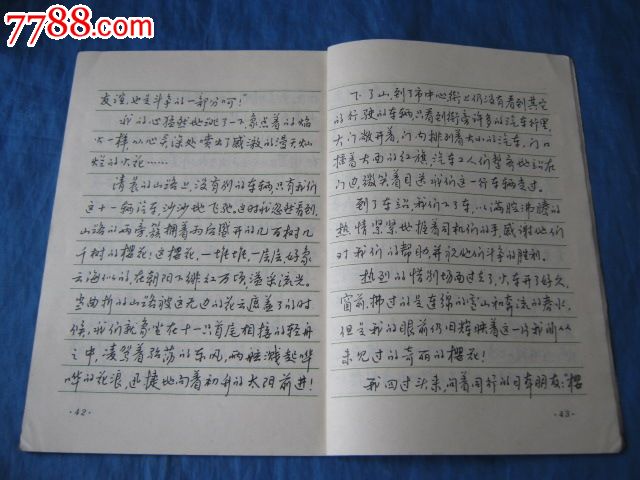 7788.com
友谊,也是斗争的一部分呵!"
我的心猛然地跳了一下,象点着的焰
火一样,从心灵深处喷出了感激的漫天灿
烂的火花……
清晨的山路上,没有别的车辆,只有我们
这十一辆汽车,沙沙地飞驰。这时我忽然看到,
山路的两旁,簇拥着雨后盛开的几百树几
千树的樱花!这樱花,一堆堆,一层层,好象
云海似的,在朝阳下绯红万顷,溢采流光。
当曲折的山路被这无边的花云遮盖了的时
候,我们就象坐在十一只首尾相接的轻舟
之中,凌驾着骀荡的东风,两舷溅起哗
哗的花浪,迅捷地向着初升的太阳前进!
·42·
下了山,到了市中心,街上仍没有看到其它
的行驶的车辆,只看到街旁许多的汽车行里,
大门敞开着,门内排列着大小的汽车,门口
插着大面的红旗,汽车工人们整齐地站在
门边,微笑着目送我们这一行车辆走过。
到了车站,我们下了车,以满腔沸腾的
热情紧紧地握着司机们的手,感谢他们
对我们的帮助,并祝他们斗争的胜利。
热烈的惜别场面过去了,火车开了好久,
窗前拂过的是连绵的雪山和奔流的春水,
但是我的眼前仍旧辉映着这一片我所从
未见过的奇丽的樱花!
我回过头来,问着同行的日本朋友:"樱
·43·